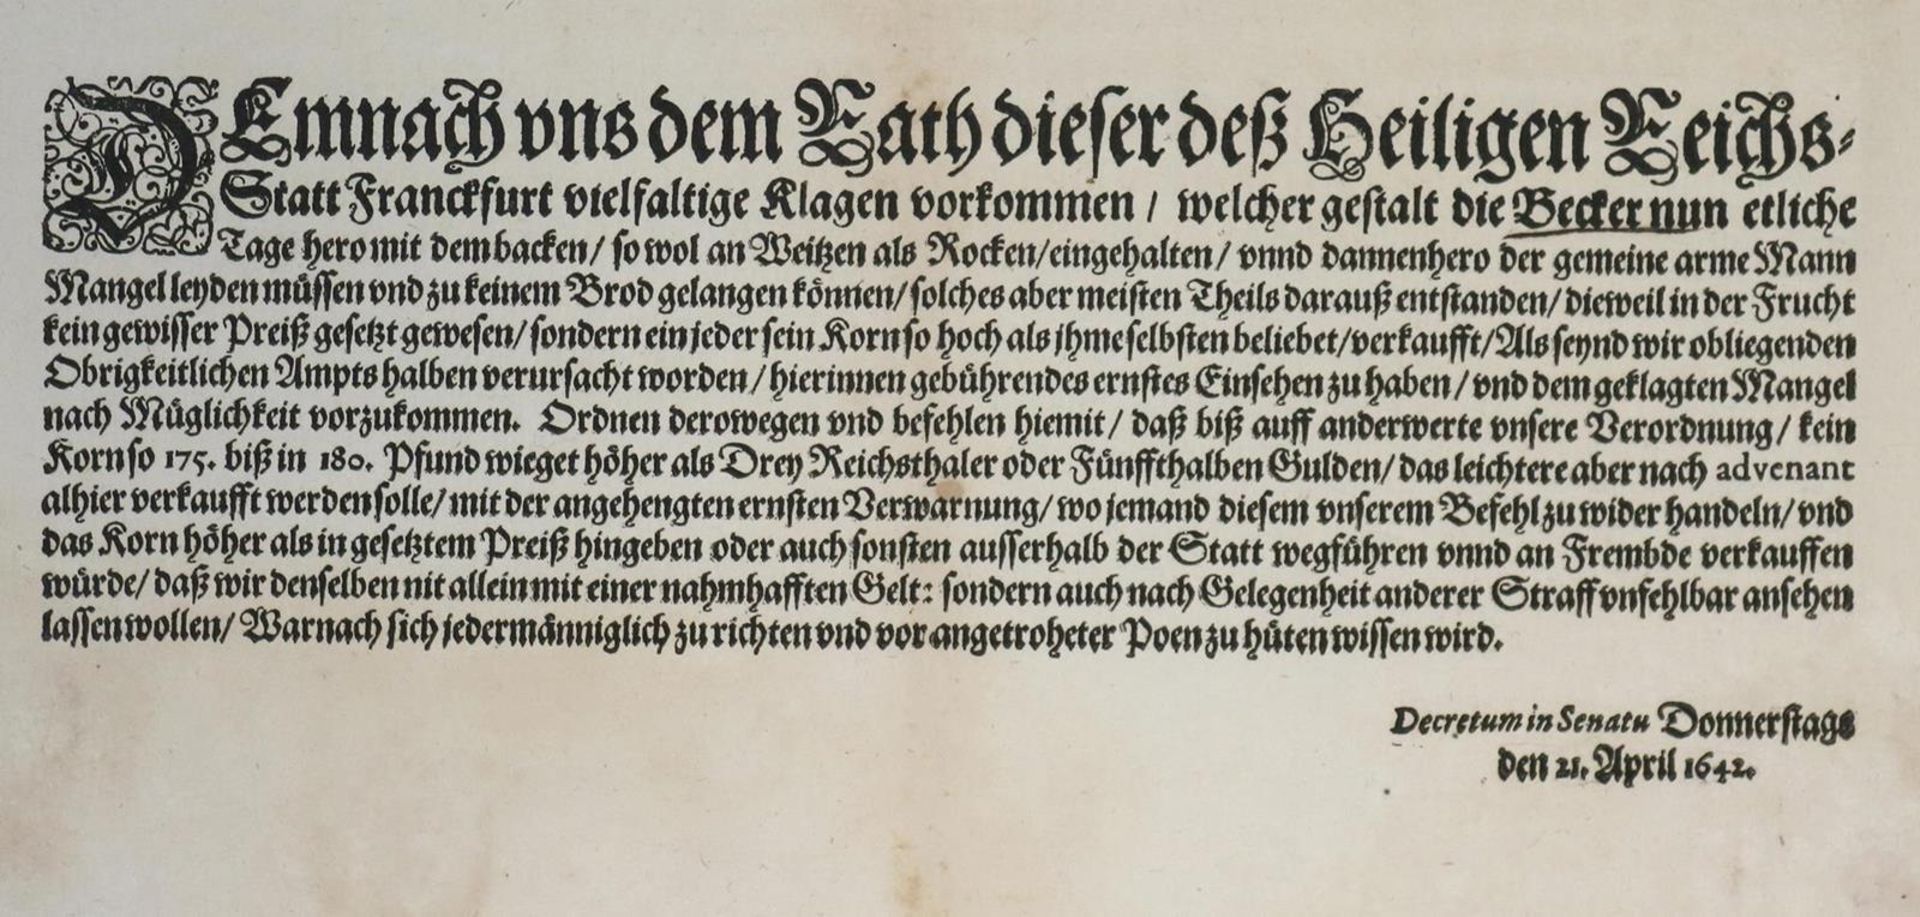 DEmnach vns dem Rath dieser deß Heiligen Reichs-
Statt Franckfurt vielfaltige Klagen vorkommen / welcher gestalt die Becker nun etliche
Tage hero mit dem backen / so wol an Weitzen als Rocken / eingehalten / vnnd dannenhero der gemeine arme Mann
Mangel leyden müssen vnd zu keinem Brod gelangen können / solches aber meisten Theils darauß entstanden / dieweil in der Frucht
kein gewisser Preiß gesetzt gewesen / sondern ein jeder sein Korn so hoch als jhme selbsten beliebet / verkaufft / Als seynd wir obliegenden
Obrigkeitlichen Ampts halben verursacht worden / hierinnen gebührendes ernstes Einsehen zu haben / vnd dem geklagten Mangel
nach Müglichkeit vorzukommen. Ordnen derowegen vnd befehlen hiemit / daß biß auff anderwerte vnsere Verordnung / kein
Korn so 175. biß in 180. Pfund wieget höher als Drey Reichsthaler oder Fünffthalben Gulden / das leichtere aber nach advenant
alhier verkaufft werden solle / mit der angehengten ernsten Verwarnung / wo jemand diesem vnserem Befehl zu wider handeln / vnd
das Korn höher als in gesetztem Preiß hingeben oder auch sonsten ausserhalb der Statt wegführen vnnd an Frembde verkauffen
würde / daß wir denselben nit allein mit einer nahmhafften Gelt: sondern auch nach Gelegenheit anderer Straff vnfehlbar ansehen
lassen wollen / Warnach sich jedermänniglich zu richten vnd vor angetroheter Poen zu hüten wissen wird.
Decretum in Senatu Donnerstags
den 21. April 1642.